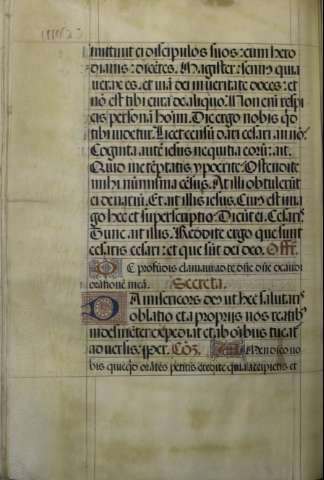 mittunt ei discipulos suos: cum hero
dianis: dicētes. Magister: scimus quia
verax es. et viā dei in veritate doces: et
nō est tibi cura de aliquo: Non enī respi
cis personā hoīm. Dic ergo nobis qd
tibi videtur. Licet censū dari cesari. an nō.
Cognita autē iesus nequitia eorū: ait.
Quid me tēptatis ypocrite: Ostendite
mihi numisma cēsus. At illi obtulerūt
ei denariū. Et ait illis iesus. Cuius est ima
go hec et superscriptio: Dicūt ei. Cesaris.
Tunc ait illis. Reddite ergo que sunt
cesaris cesari: et que sūt dei deo. Offr.
De profūdis clamavi ad te dñe dñe exaudi
orationē meā. Secreta.
Da misericors deus ut hec salutaris
oblatio et a propriis nos reatibus
indesinēter expediat et ab oībus tueat
adversis. per. Cōo. Amen dico vo
bis quicqd orātes petitis credite quia accipietis et